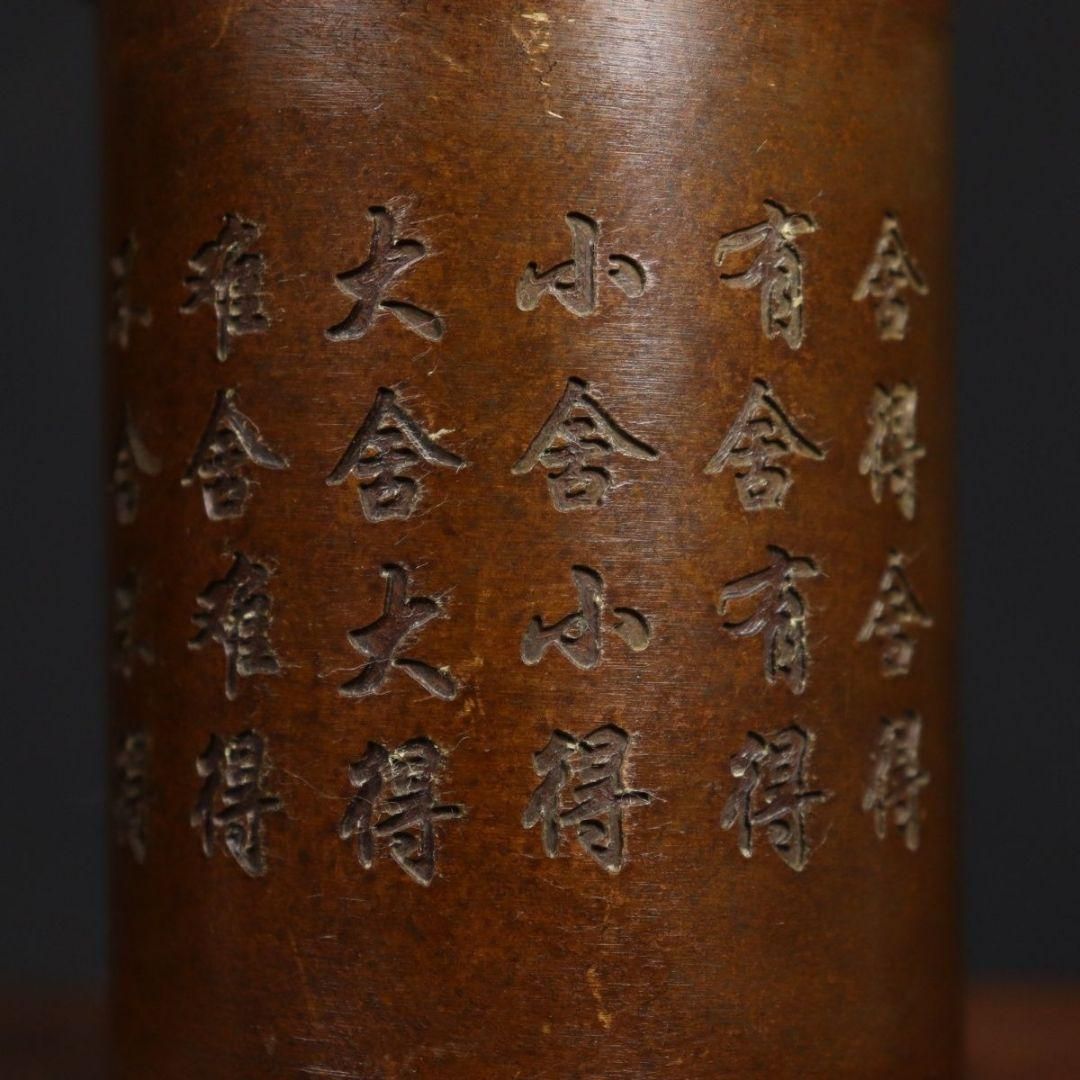 舍得舍得
有舍有得
小舍小得
大舍大得
难舍难得
舍得